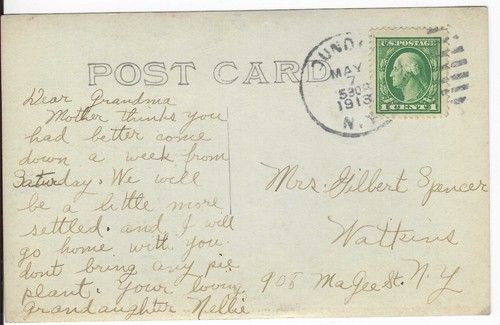 POST CARD
DUND
MAY
7
530P
1913
N.Y.
U.S. POSTAGE
1 CENTS 1
Dear Grandma
Mother thinks you
had better come
down a week from
Saturday. We will
be a little more
settled. and I will
go home with you.
dont bring any pie
plant. Your loving
grandaughter Nellie
Mrs. Gilbert Spencer
Watkins
908 Magee St. N.Y